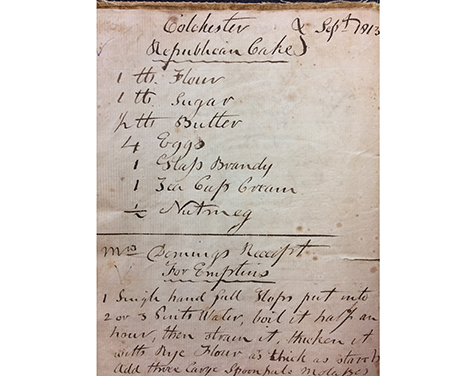 Colchester
Republican Cake } Sept 1813
1 lb. Flour
1 lb Sugar
½ lb Butter
4 Eggs
1 Glass Brandy
1 Tea Cup Cream
½ Nutmeg
Mrs Demings Receipt
For Emptins
1 Single hand full Hops put into
2 or 3 Pints Water, boil it half an
hour, then strain it, thicken it
with Rye Flour as thick as starch
Add three large Spoonfuls Molasses